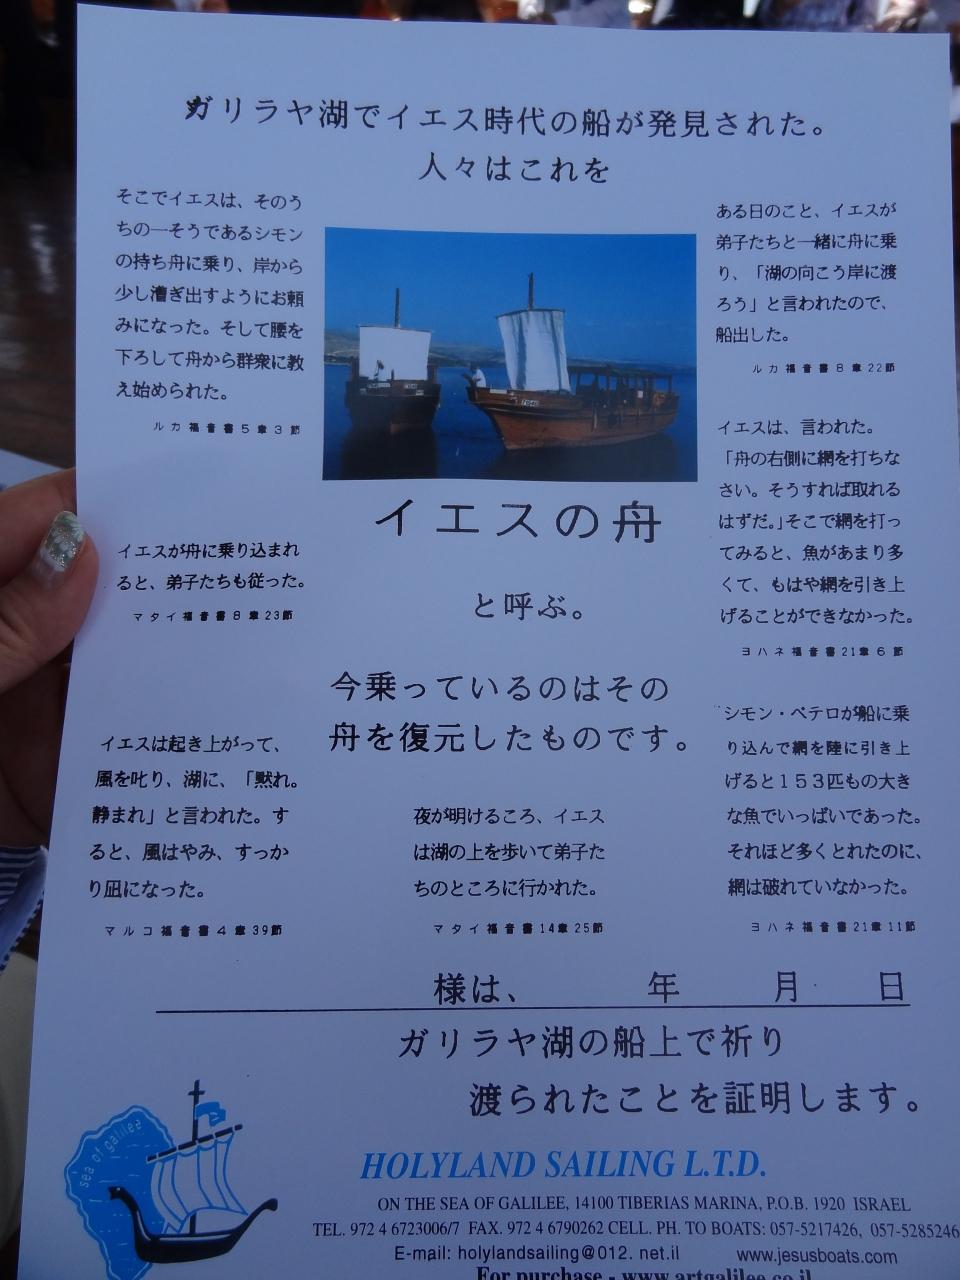 ガリラヤ湖でイエス時代の船が発見された。
人々はこれを
そこでイエスは、そのう
ちの一そうであるシモン
の持ち舟に乗り、岸から
少し漕ぎ出すようにお頼
みになった。そして腰を
下ろして舟から群衆に教
え始められた。
ルカ福音書5章3節
イエスが舟に乗り込まれ
ると、弟子たちも従った。
マタイ福音書8章23節
イエスは起き上がって、
風を叱り、湖に、「黙れ。
静まれ」と言われた。す
ると、風はやみ、すっか
り凪になった。
マルコ福音書4章39節
イエスの舟
と呼ぶ。
今乗っているのはその
舟を復元したものです。
夜が明けるころ、イエス
は湖の上を歩いて弟子た
ちのところに行かれた。
マタイ福音書14章25節
ある日のこと、イエスが
弟子たちと一緒に舟に乗
り、「湖の向こう岸に渡
ろう」と言われたので、
船出した。
ルカ福音書8章22節
イエスは、言われた。
「舟の右側に網を打ちな
さい。そうすれば取れる
はずだ。」そこで網を打っ
てみると、魚があまり多
くて、もはや網を引き上
げることができなかった。
ヨハネ福音書21章6節
シモン・ペテロが船に乗
り込んで網を陸に引き上
げると153匹もの大き
な魚でいっぱいであった。
それほど多くとれたのに、
網は破れていなかった。
ヨハネ福音書21章11節
様は、 年 月 日
ガリラヤ湖の船上で祈り
渡られたことを証明します。
sea of galilee
HOLYLAND SAILING L.T.D.
ON THE SEA OF GALILEE, 14100 TIBERIAS MARINA, P.O.B. 1920 ISRAEL
TEL. 972 4 6723006/7 FAX. 972 4 6790262 CELL. PH. TO BOATS: 057-5217426, 057-5285246
E-mail: holylandsailing@012. net.il www.jesusboats.com
For purchase - www.artgalilee.co.il